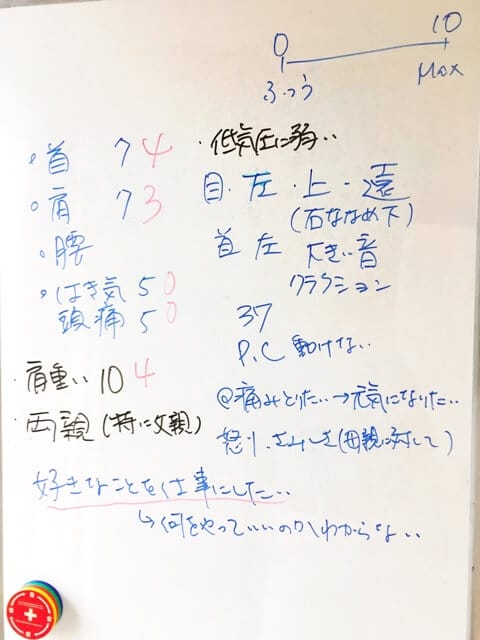 0 10
ふつう Max
・首 7 4
・肩 7 3
・腰
・はき気 5 0
頭痛 5 0
・肩重い 10 4
・両親(特に父親)
・低気圧に弱い
目・左・上・遠
(右ななめ下)
首 左 大きい音
クラクション
37
P.C 動けない
@痛みとりたい→元気になりたい
怒り、さみしさ(母親に対して)
好きなことを仕事にしたい
↳何をやっていいのかわからない